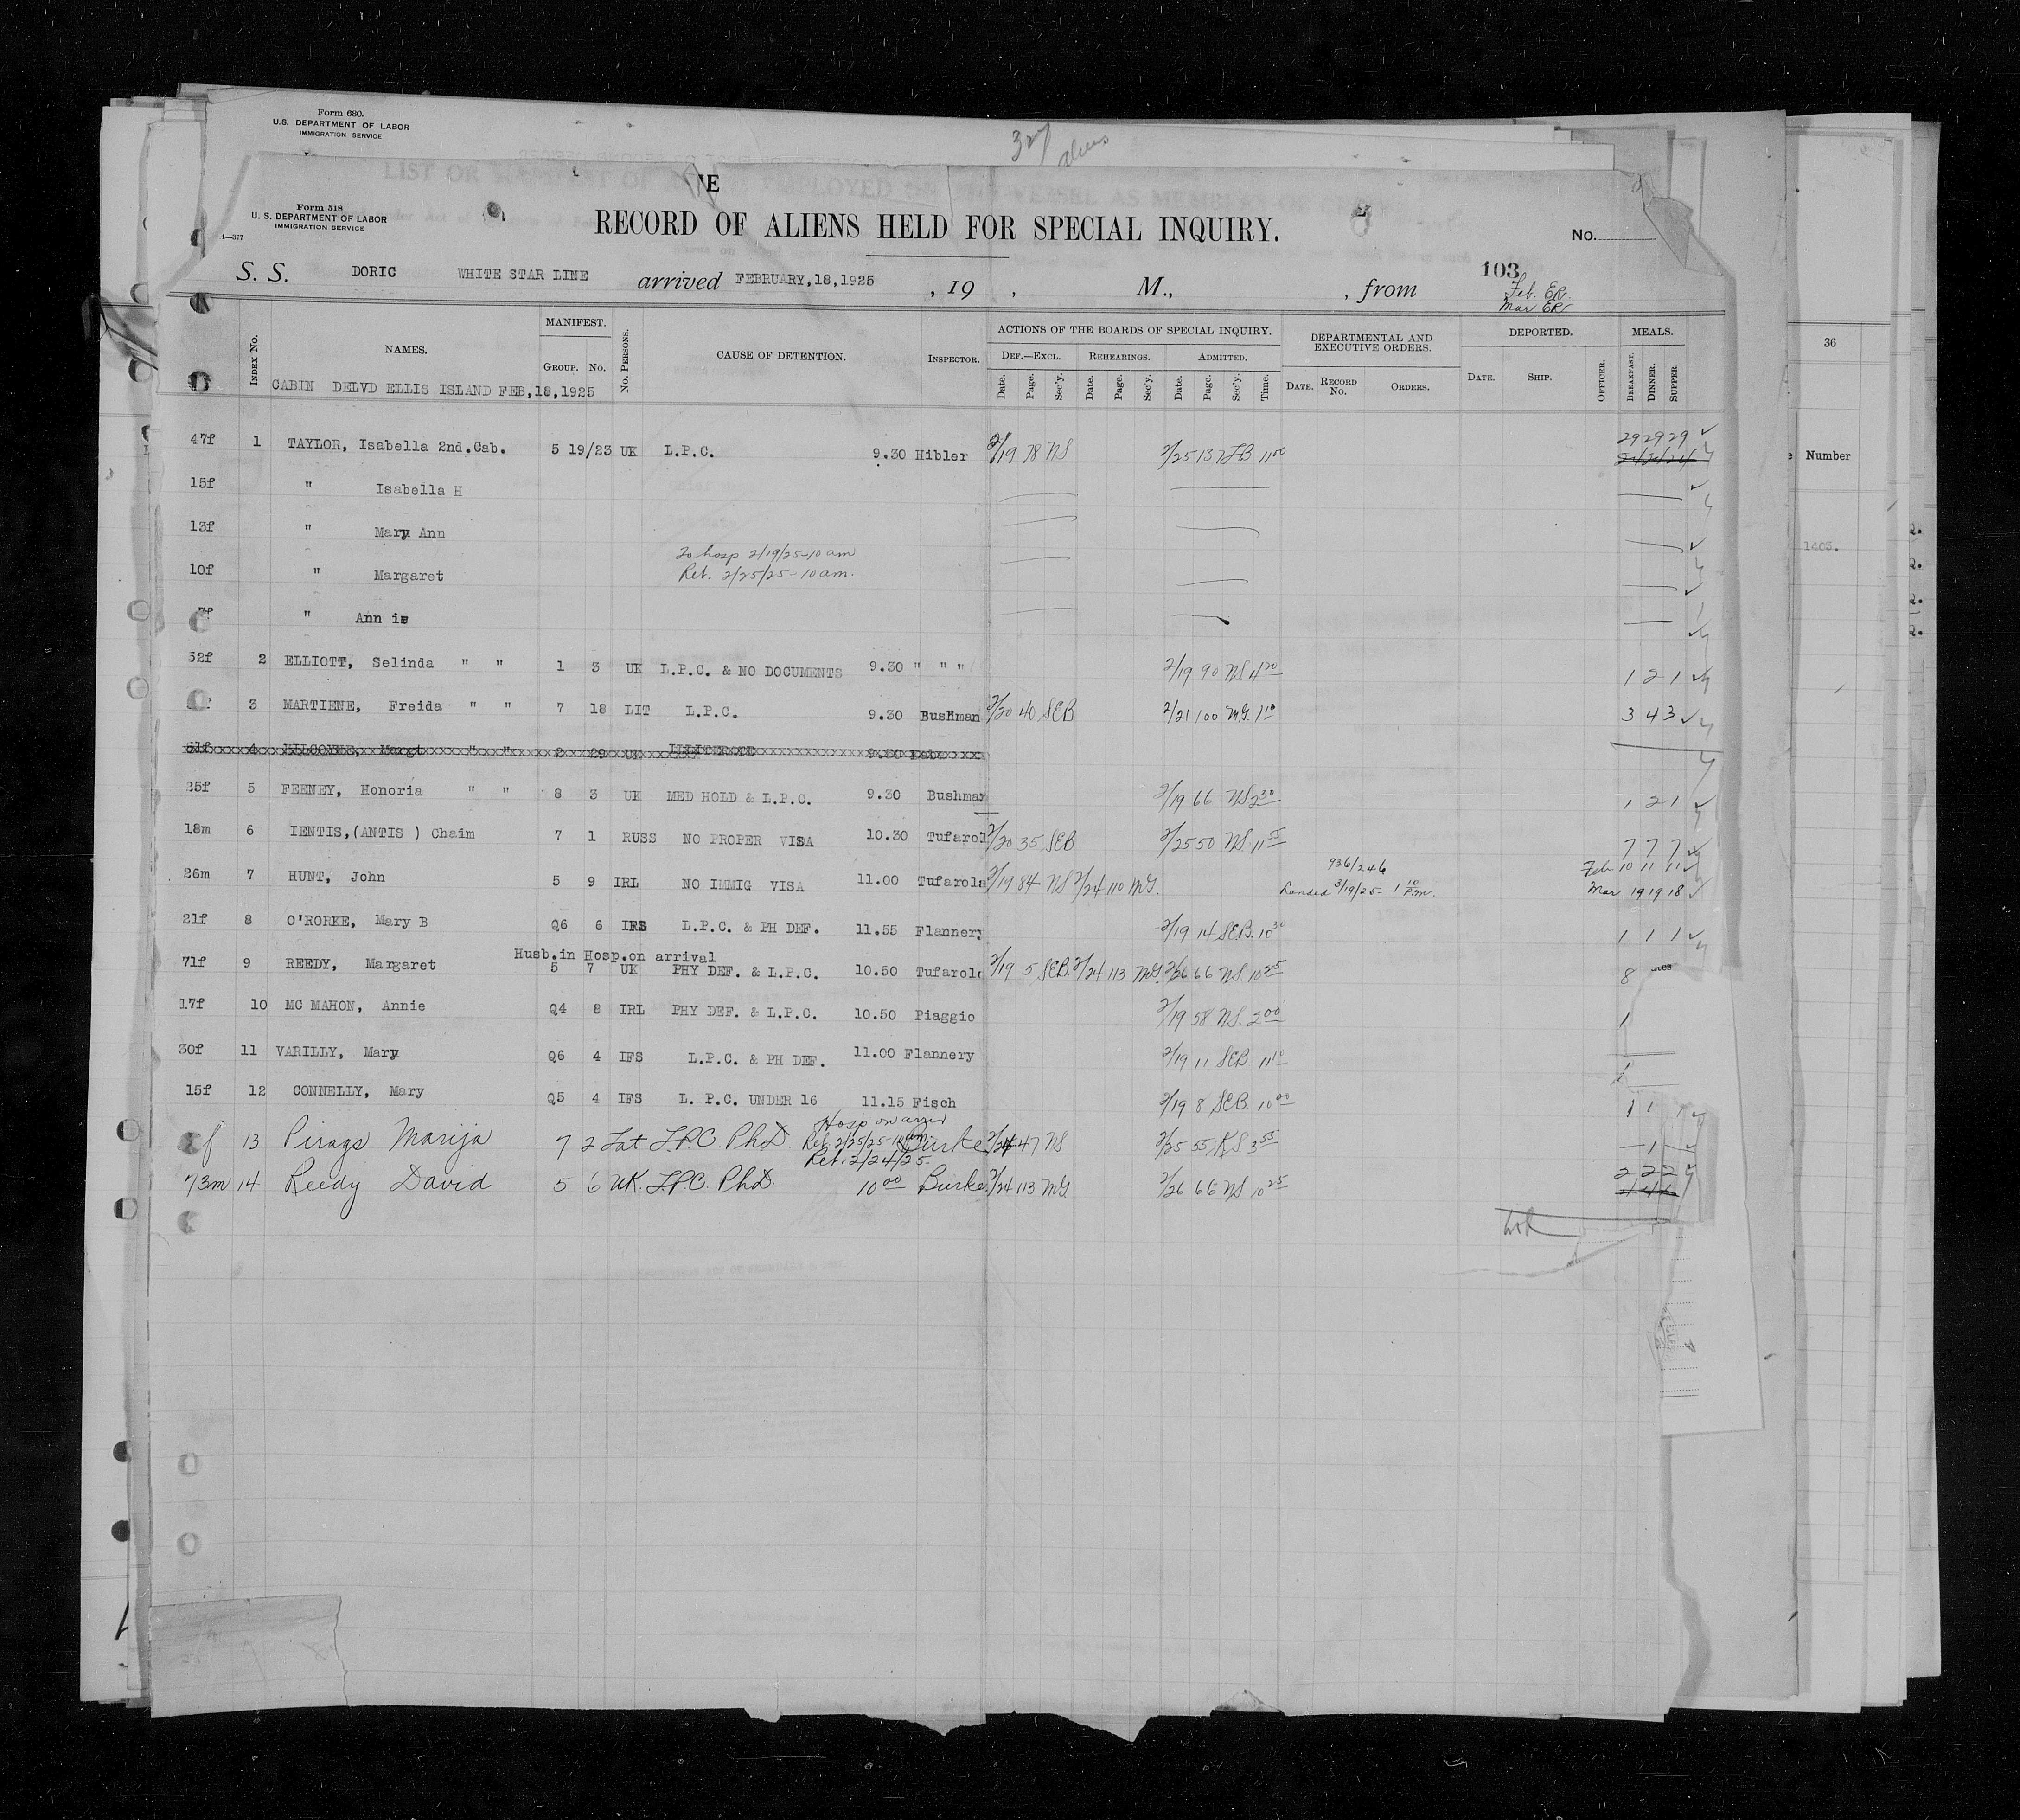 Form 680.
U.S. DEPARTMENT OF LABOR
IMMIGRATION SERVICE
3rd
aliens
Form 518
U. S. DEPARTMENT OF LABOR
IMMIGRATION SERVICE
RECORD OF ALIENS HELD FOR SPECIAL INQUIRY.
No.
S. S. DORIC WHITE STAR LINE arrived FEBRUARY,18,1925 , 19 , M., , from 103
Feb. ER.
Mar ER
INDEX No. NAMES. MANIFEST. GROUP. No. No. PERSONS. CAUSE OF DETENTION. INSPECTOR. ACTIONS OF THE BOARDS OF SPECIAL INQUIRY. DEPARTMENTAL AND EXECUTIVE ORDERS. DEPORTED. MEALS.
DEF.—EXCL. REHEARINGS. ADMITTED.
Date. Page. Sec'y. Date. Page. Sec'y. Date. Page. Sec'y. Time. DATE. RECORD No. ORDERS. DATE. SHIP. OFFICER. BREAKFAST. DINNER. SUPPER.
CABIN DELVD ELLIS ISLAND FEB,18,1925
47f 1 TAYLOR, Isabella 2nd.Cab. 5 19/23 UK L.P.C. 9.30 Hibler 2/19 78 NS 2/25 137 LB 11 00 29 29 29
15f " Isabella H
13f " Mary Ann
To hosp 2/19/25-10 am
10f " Margaret Ret. 2/25/25-10 am.
7f " Annie
52f 2 ELLIOTT, Selinda " " 1 3 UK L.P.C. & NO DOCUMENTS 9.30 " " " 2/19 90 NS 4 20 1 2 1
3 MARTIENE, Freida " " 7 18 LIT L.P.C. 9.30 Bushman 2/20 40 SEB 2/21 100 M.G. 1 10 3 4 3
4 Margt " " 2 29 UK ILLITERATE 9.30
25f 5 FEENEY, Honoria " " 8 3 UK MED HOLD & L.P.C. 9.30 Bushman 2/19 66 NS 2 30 1 2 1
18m 6 IENTIS,(ANTIS ) Chaim 7 1 RUSS NO PROPER VISA 10.30 Tufarol 2/20 35 SEB 2/25 50 NS. 11 55 7 7 7
26m 7 HUNT, John 5 9 IRL NO IMMIG VISA 11.00 Tufarola 2/19 84 NS 2/24 110 M.G. 936/246 Feb 10 11 11
Landed 3/19/25- 1 10 P.m. Mar 19 19 18
21f 8 O'RORKE, Mary B Q6 6 IRS L.P.C. & PH DEF. 11.55 Flannery 2/19 14 SEB. 10 30 1 1 1
Husb.in Hosp.on arrival
71f 9 REEDY, Margaret 5 7 UK PHY DEF. & L.P.C. 10.50 Tufarolo 2/19 5 SEB. 2/24 113 M.G. 2/26 66 NS. 10 25 8
17f 10 MC MAHON, Annie Q4 8 IRL PHY DEF. & L.P.C. 10.50 Piaggio 2/19 58 NS. 2 00 1
30f 11 VARILLY, Mary Q6 4 IFS L.P.C. & PH DEF. 11.00 Flannery 2/19 11 SEB 11 10 1
15f 12 CONNELLY, Mary Q5 4 IFS L. P.C. UNDER 16 11.15 Fisch 2/19 8 SEB. 10 00 1 1 1
Hosp on arriv
f 13 Pirags Marija 7 2 Lat L.P.C. PhD Ret 2/25/25-10 am Burke 2/24 47 NS 2/25 55 KS 3 55 1
Ret. 2/24/25.
73m 14 Reedy David 5 6 UK. L.P.C. PhD. 10 00 Burke 2/24 113 M.G. 2/26 66 NS 10 25 2 2 2
36
Number
1403.